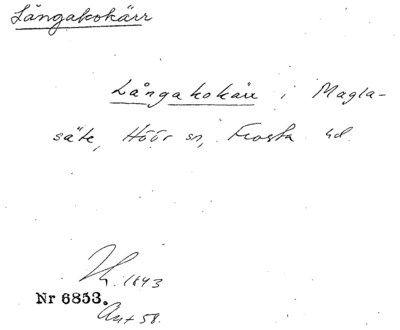 Långakokärr
Långakokärr i Magla-
säte, Höör sn, Frosta hd.
1843
Nr 6853.
Ant 58.